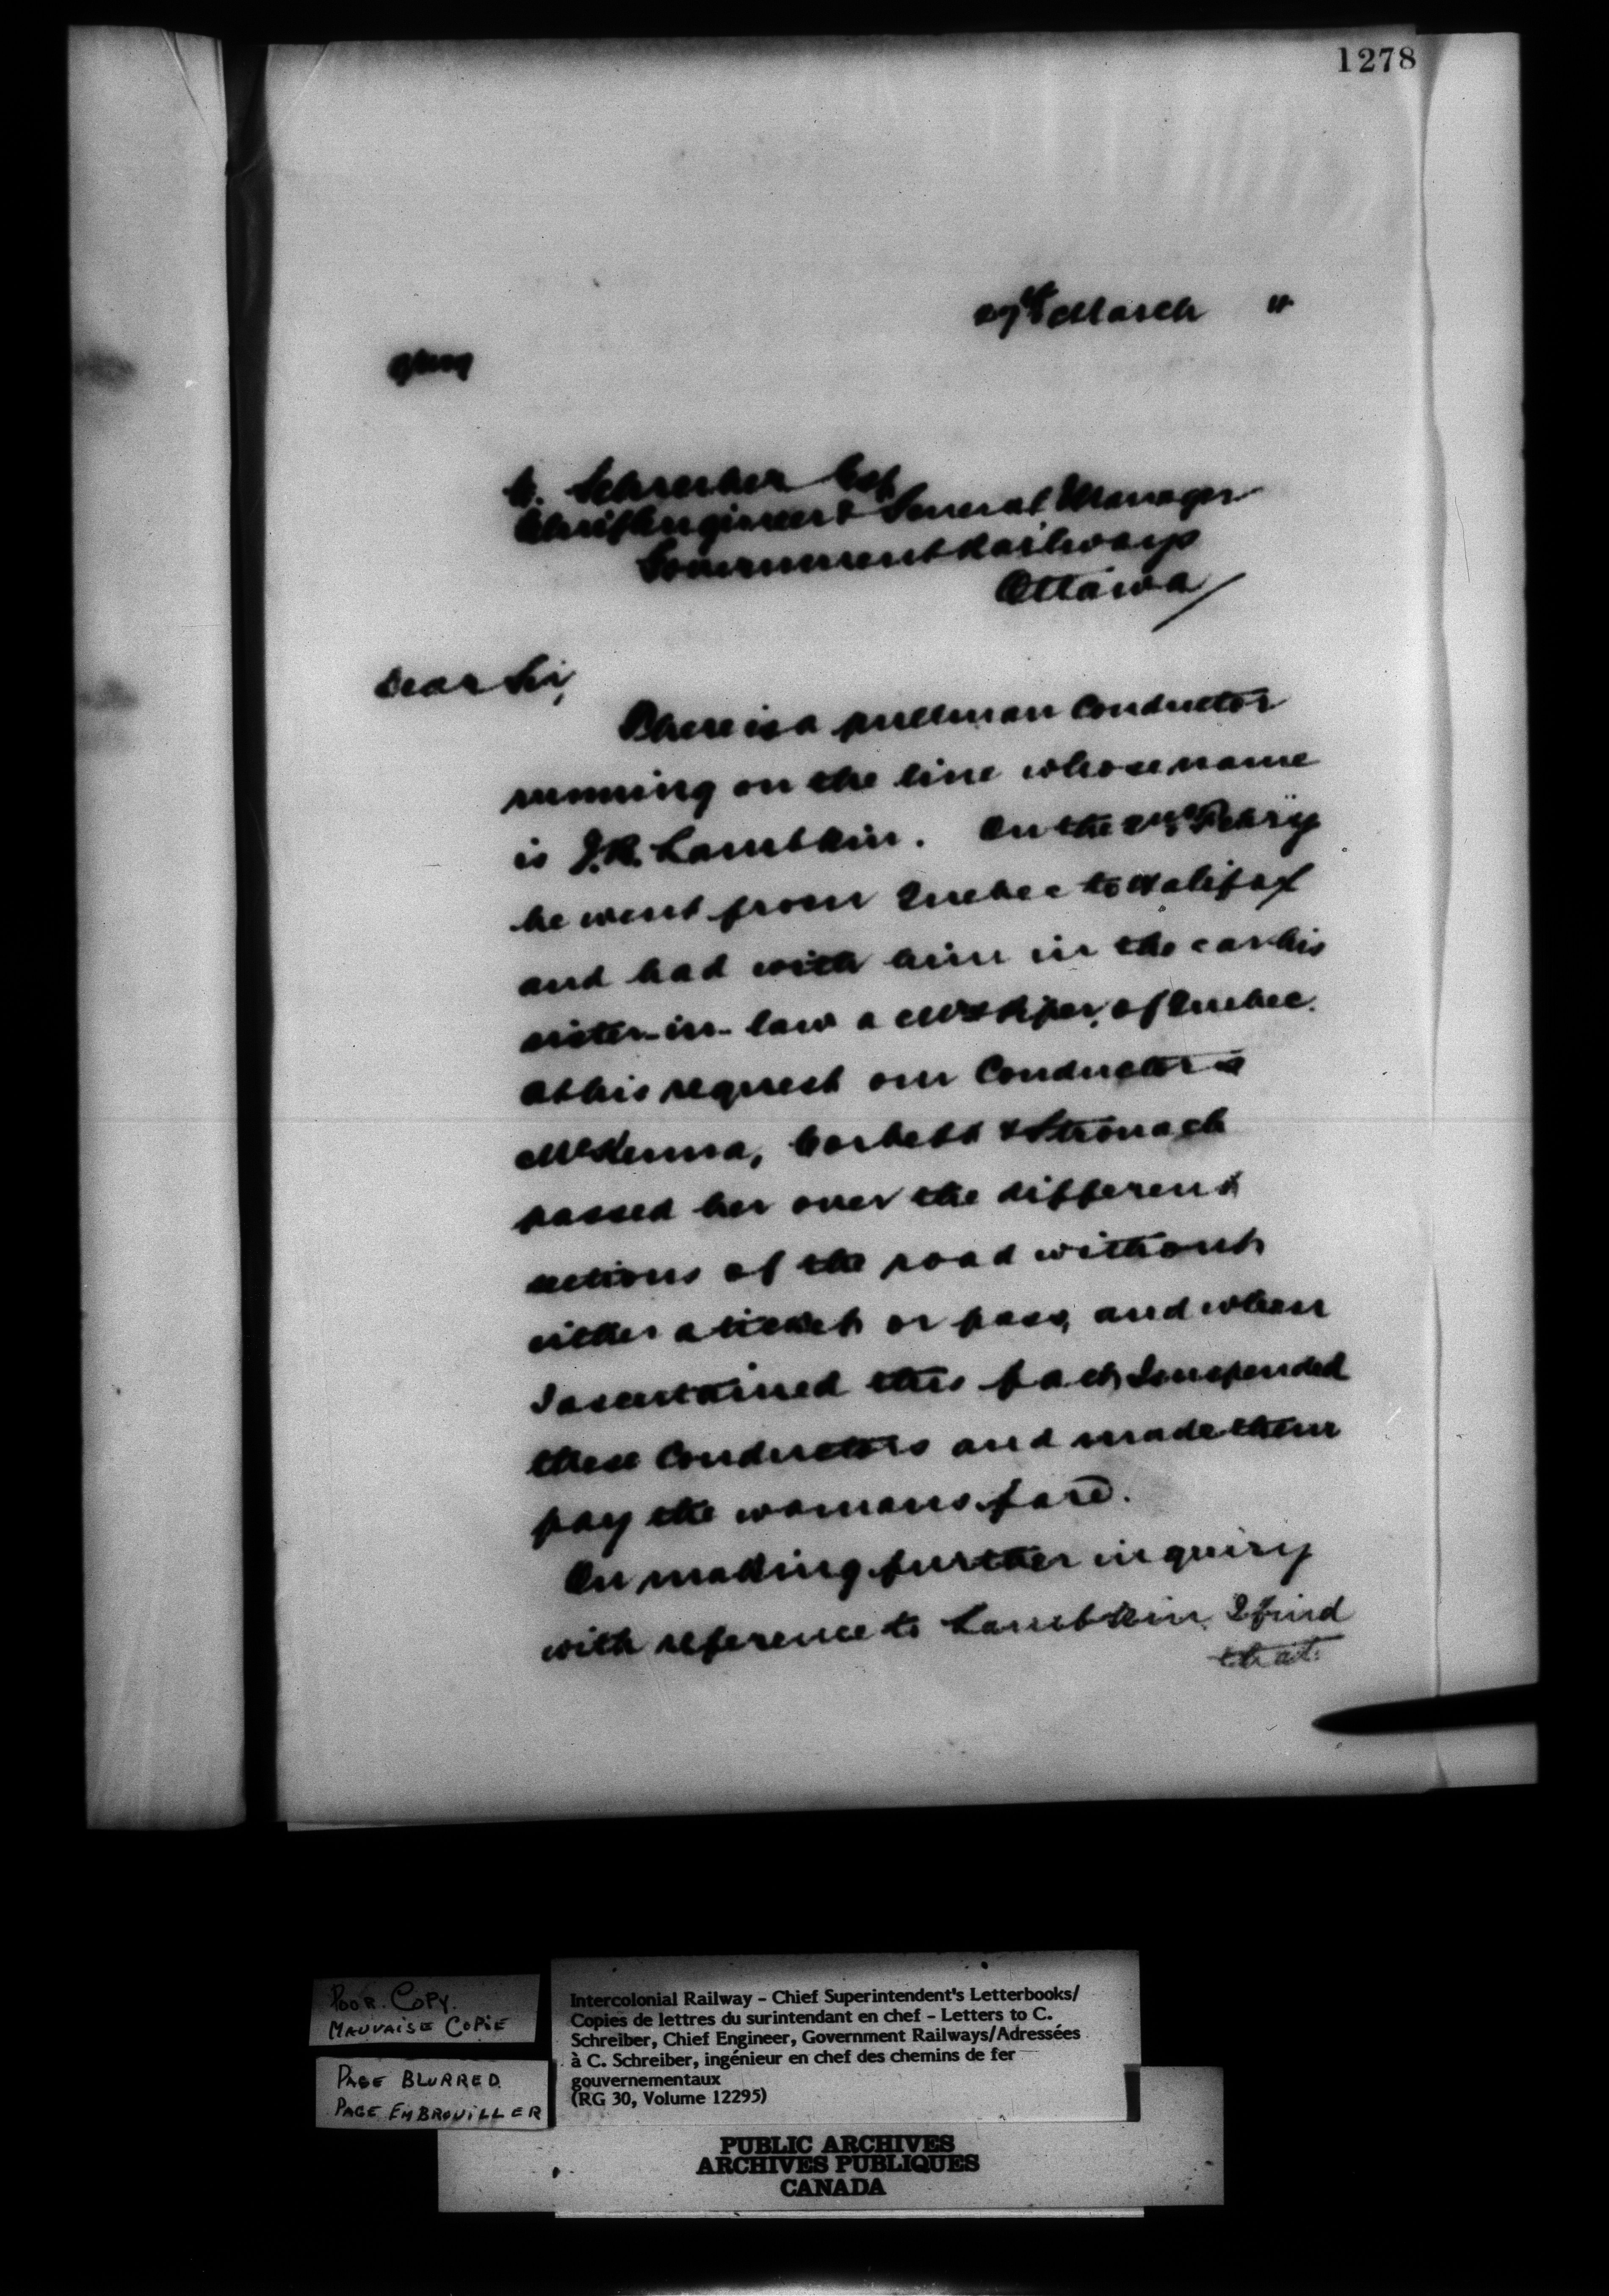 1278
27th March "
C. Schreiber Esq
Chief Engineer & General Manager
Government Railways
Ottawa
Dear Sir,
There is a pullman Conductor
running on the line whose name
is J.R. Lambkin. On the Febry
he went from Quebec to Halifax
and had with him in the car his
sister-in-law a of Quebec.
At his request our Conductors
McKenna, Corbett & Stronach
passed her over the different
sections of the road without
either a ticket or pass, and when
I ascertained this fact, I suspended
these Conductors and made them
pay the womans fare.
On making further inquiry
with reference to Lambkin I find
that
POOR COPY.
MAUVAISE COPIE
PAGE BLURRED.
PAGE EMBROUILLER
Intercolonial Railway – Chief Superintendent's Letterbooks/
Copies de lettres du surintendant en chef – Letters to C.
Schreiber, Chief Engineer, Government Railways/Adressées
à C. Schreiber, ingénieur en chef des chemins de fer
gouvernementaux
(RG 30, Volume 12295)
PUBLIC ARCHIVES
ARCHIVES PUBLIQUES
CANADA